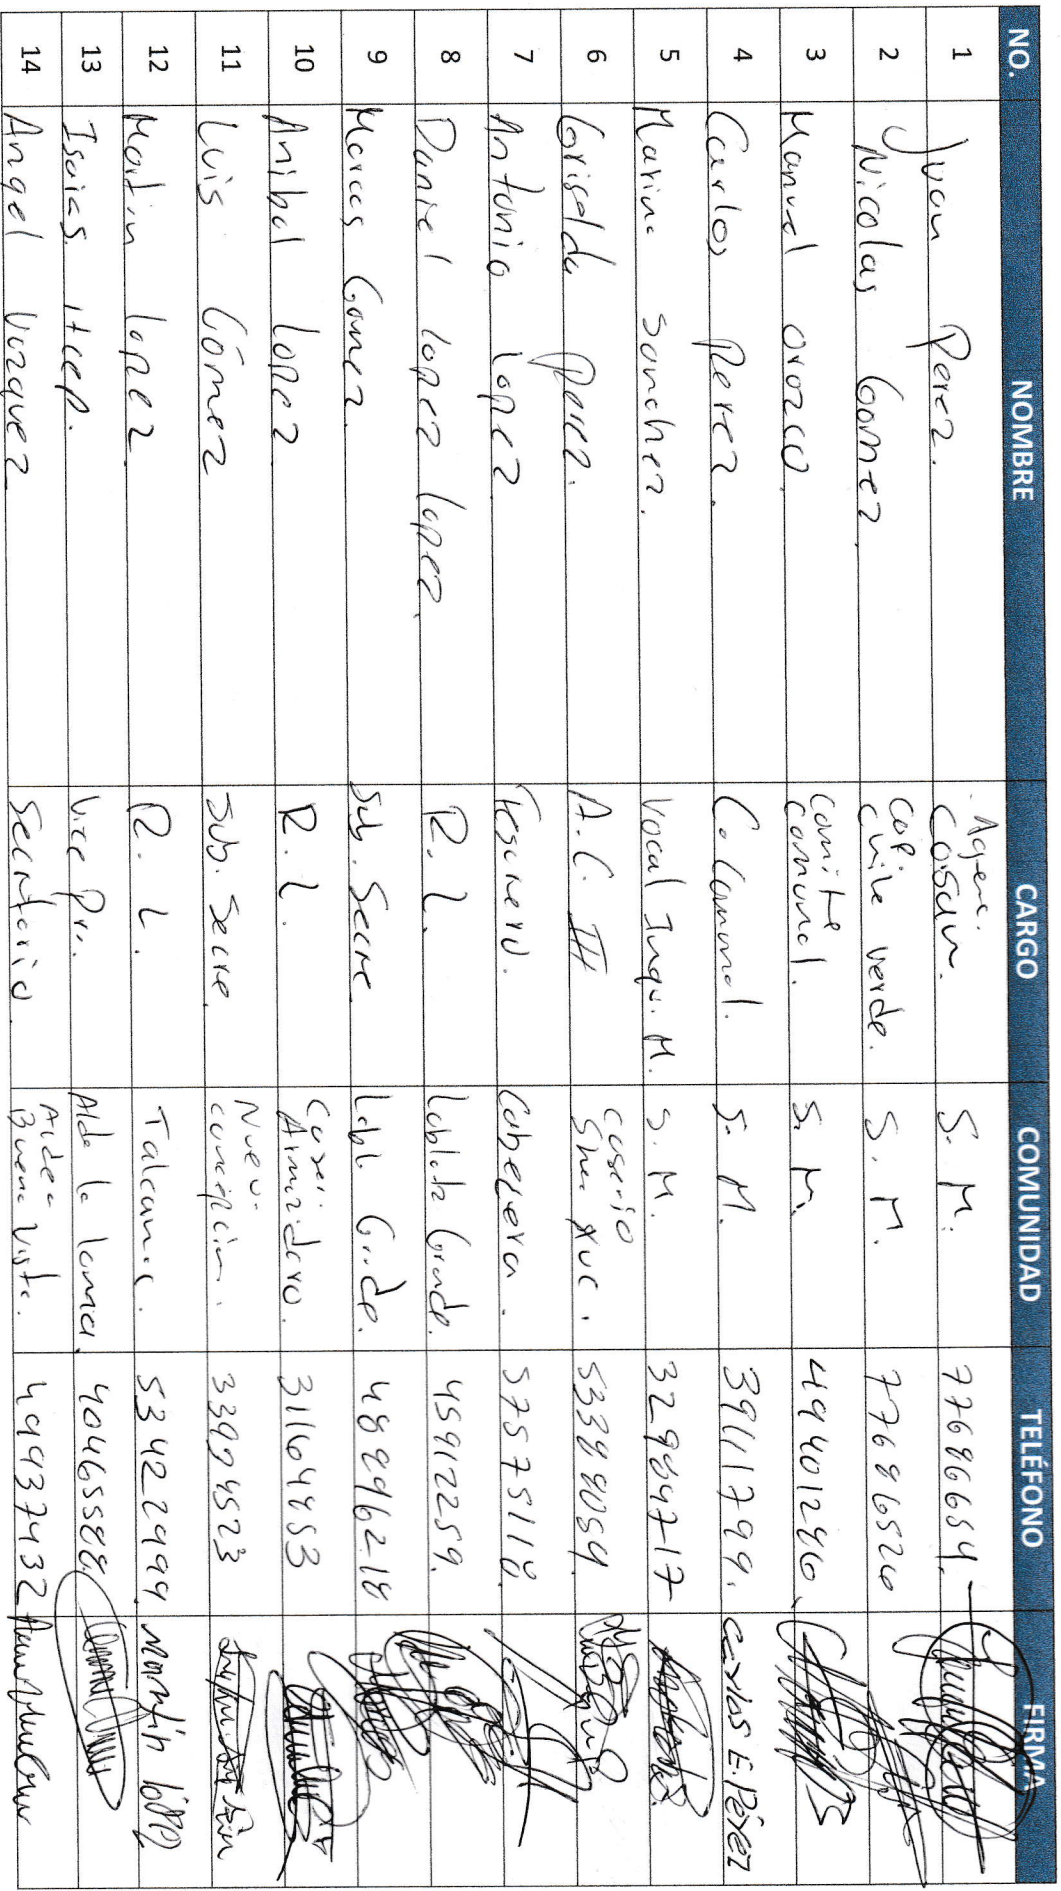 NO. NOMBRE CARGO COMUNIDAD TELÉFONO FIRMA
1 Juan Perez. Agene. Cosain. S. M. 77686654,
2 Nicolas Gomez. Cop. Chile verde. S. M. 77686526
3 Manuel Orozco. Comite Comunal. S. M. 49401246,
4 Carlos Perez. C. Comunal. S. M. 39111799. Carlos E. Pérez
5 Marina Sanchez. Vocal Inqu. M. S. M. 32984717
6 Griselda Perez. A.C. III Caserio 53398054
7 Antonio Lopez Tesorero. Cabecera. 57575118.
8 Daniel Lopez Lopez. R. L. Grande. 45912259.
9 Marcos Gomez. Sub. Secre. 48996218
10 Anibal Lopez R. L. Caseri 31164453
11 Luis Gómez Sub. Secre Nuev. Concepcion. 33994523
12 Martin Lopez R. L. Talcanac. 53422999. Martin
13 Isaias Itcep. Vice Pr. Alde la Loma. 40465588.
14 Angel Vazquez Secretario. Aldea Buena Vista. 49937432